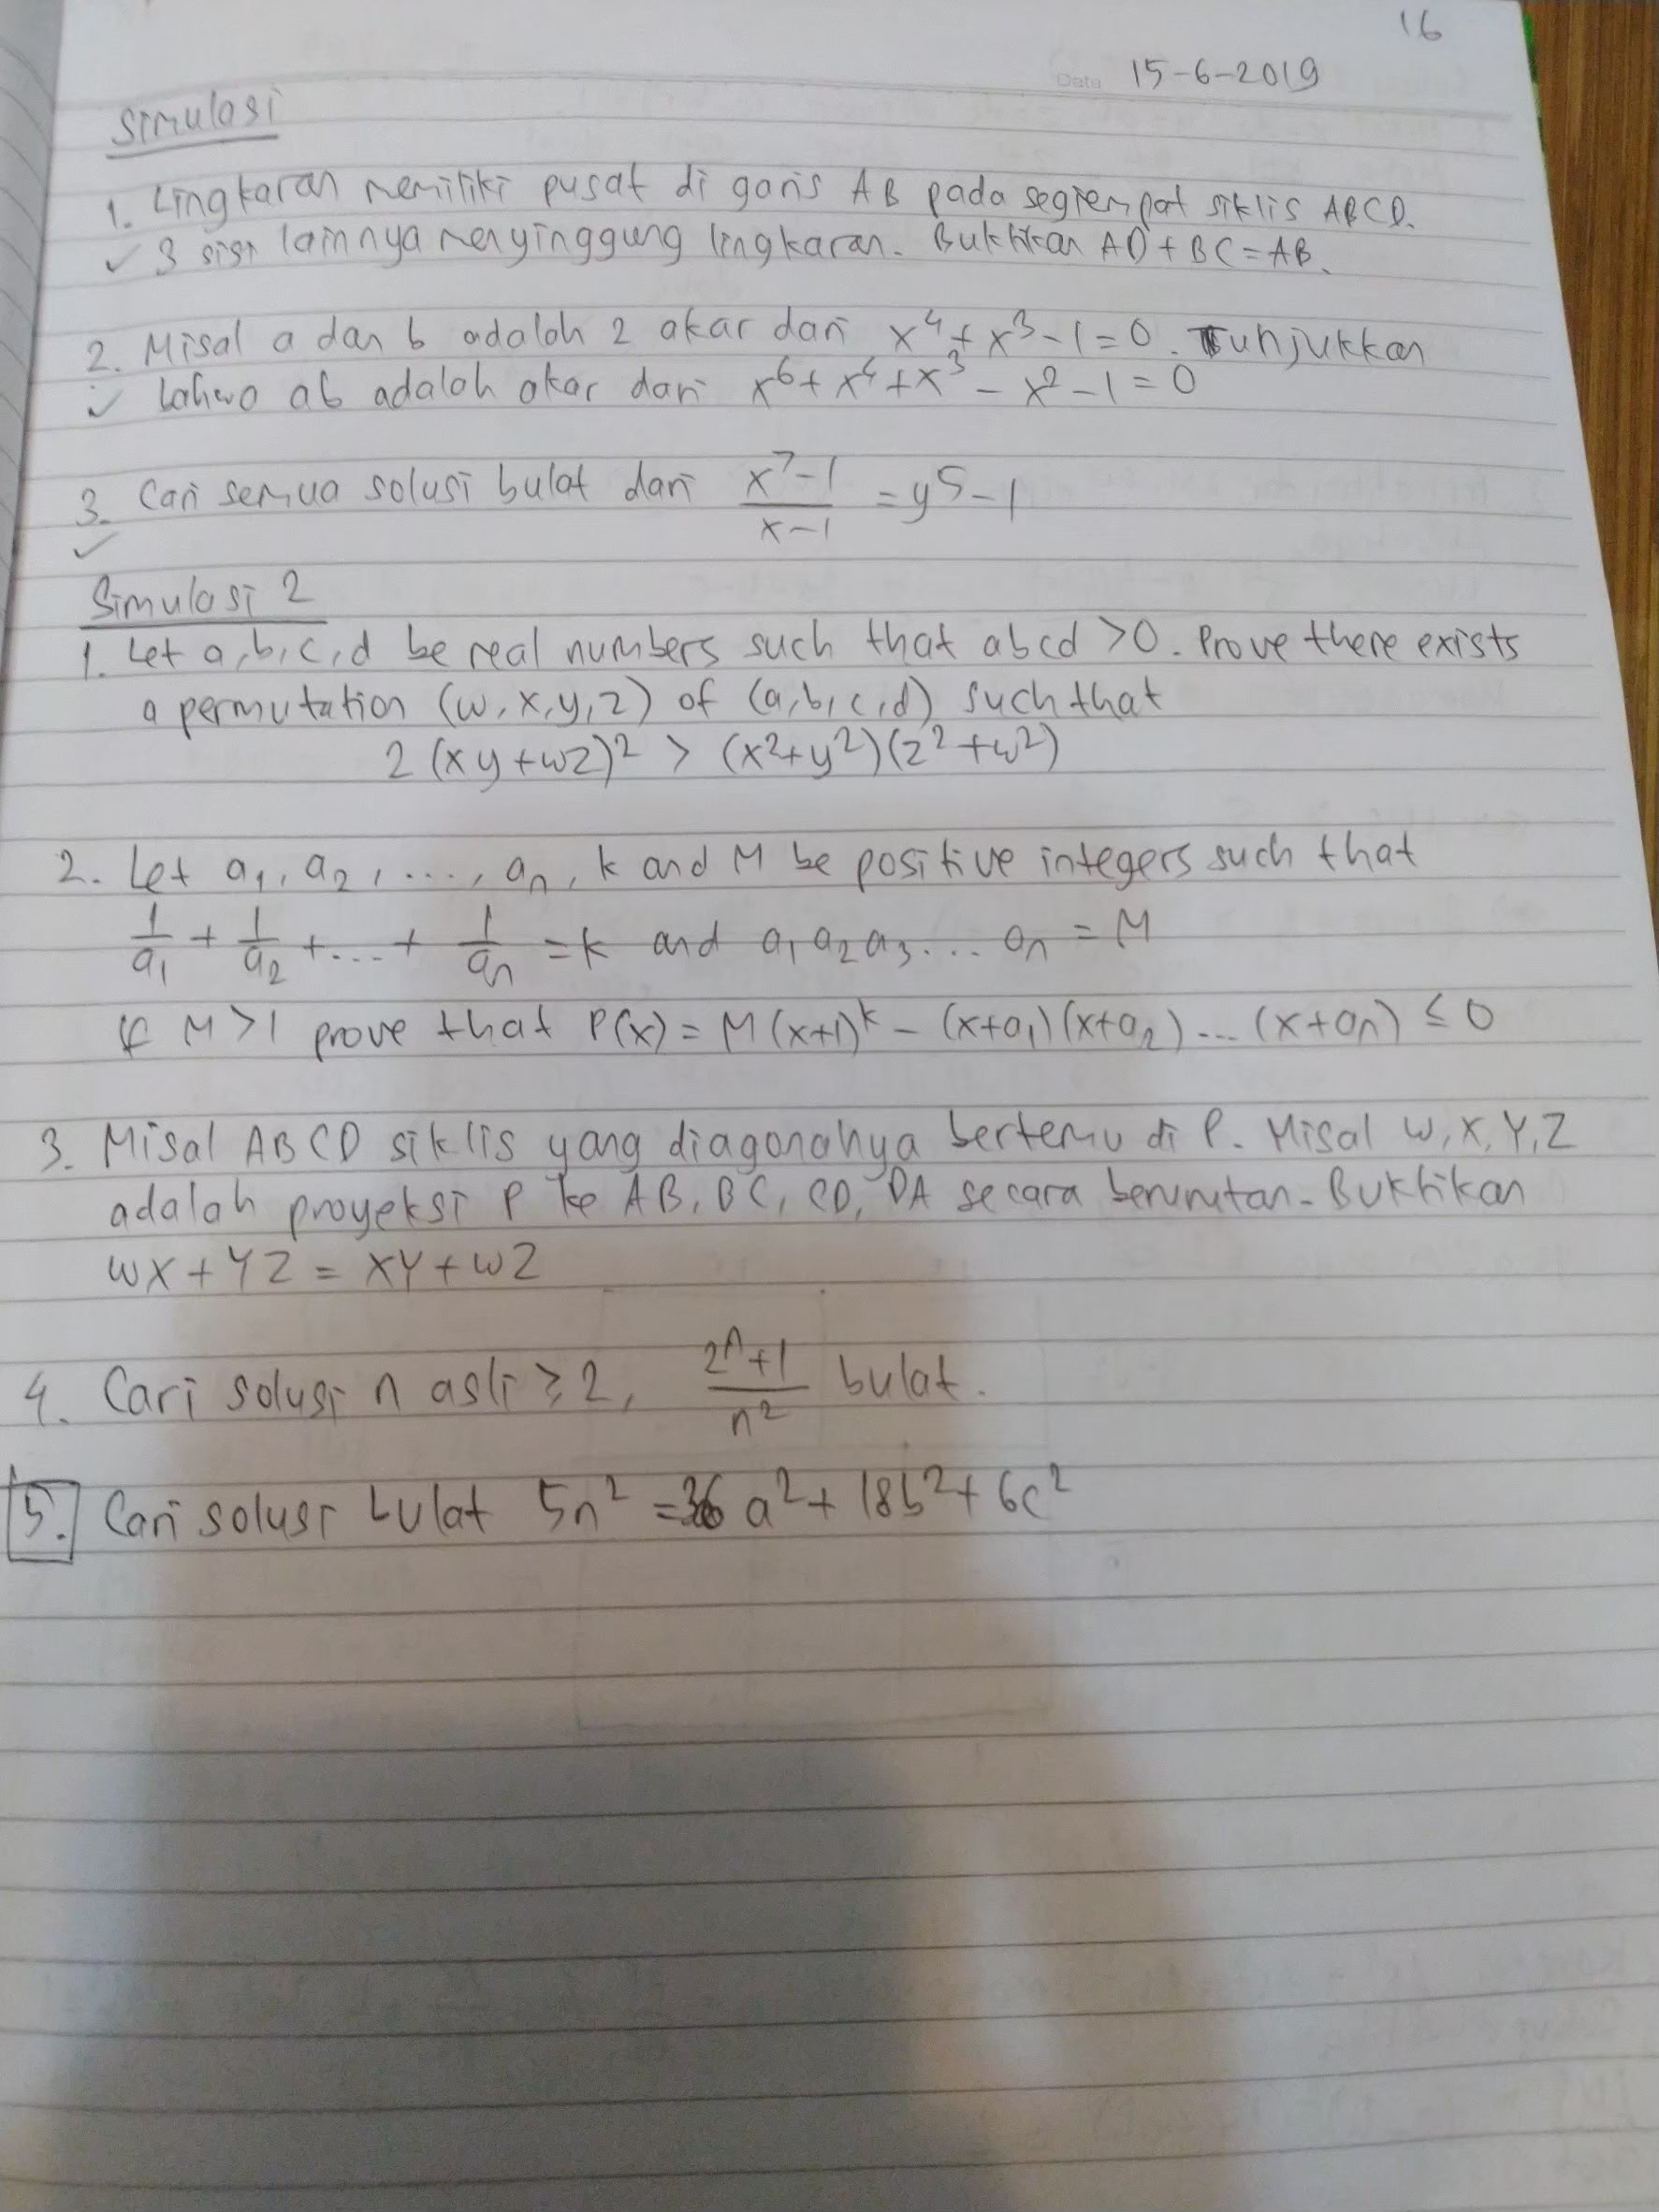 16
Date 15-6-2019
Simulasi
1. Lingkaran memiliki pusat di garis AB pada segiempat siklis ABCD.
✓ 3 sisi lainnya menyinggung lingkaran. Buktikan AD + BC = AB.
2. Misal a dan b adalah 2 akar dari x⁴ + x³ - 1 = 0. Tunjukkan
✓ bahwa ab adalah akar dari x⁶ + x⁴ + x³ - x² - 1 = 0
3. Cari semua solusi bulat dari (x⁷-1)/(x-1) = y⁵ - 1
✓
Simulasi 2
1. Let a, b, c, d be real numbers such that abcd > 0. Prove there exists
a permutation (w, x, y, z) of (a, b, c, d) such that
2(xy + wz)² > (x² + y²)(z² + w²)
2. Let a₁, a₂, ..., aₙ, k and M be positive integers such that
1/a₁ + 1/a₂ + ... + 1/aₙ = k and a₁ a₂ a₃ ... aₙ = M
If M > 1 prove that P(x) = M(x+1)ᵏ - (x+a₁)(x+a₂) ... (x+aₙ) ≤ 0
3. Misal ABCD siklis yang diagonalnya bertemu di P. Misal W, X, Y, Z
adalah proyeksi P ke AB, BC, CD, DA secara berurutan. Buktikan
WX + YZ = XY + WZ
4. Cari solusi n asli ≥ 2, (2ⁿ+1)/n² bulat.
5. Cari solusi bulat 5n² = 36a² + 18b² + 6c²